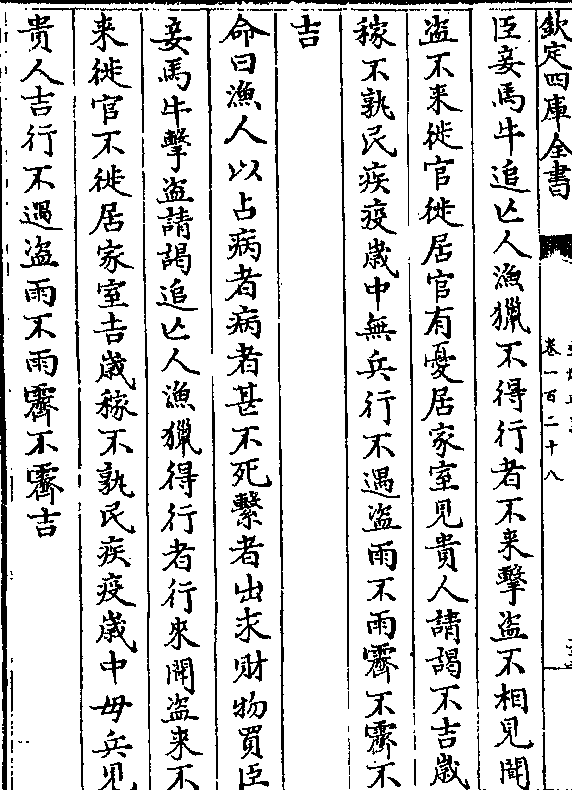 欽定四庫全書
卷一百二十八
臣妾馬牛追亡人漁獵不得行者不来擊盗不相見聞
盗不来徙官徙居官有憂居家室見貴人請謁不吉歳
稼不孰民疾疫歳中無兵行不遇盗雨不雨霽不霽不
吉
命曰漁人以占病者病者甚不死繫者出求财物買臣
妾馬牛擊盗請謁追亡人漁獵得行者行來聞盗来不
来徙官不徙居家室吉歳稼不孰民疾疫歳中毋兵見
貴人吉行不遇盗雨不雨霽不霽吉